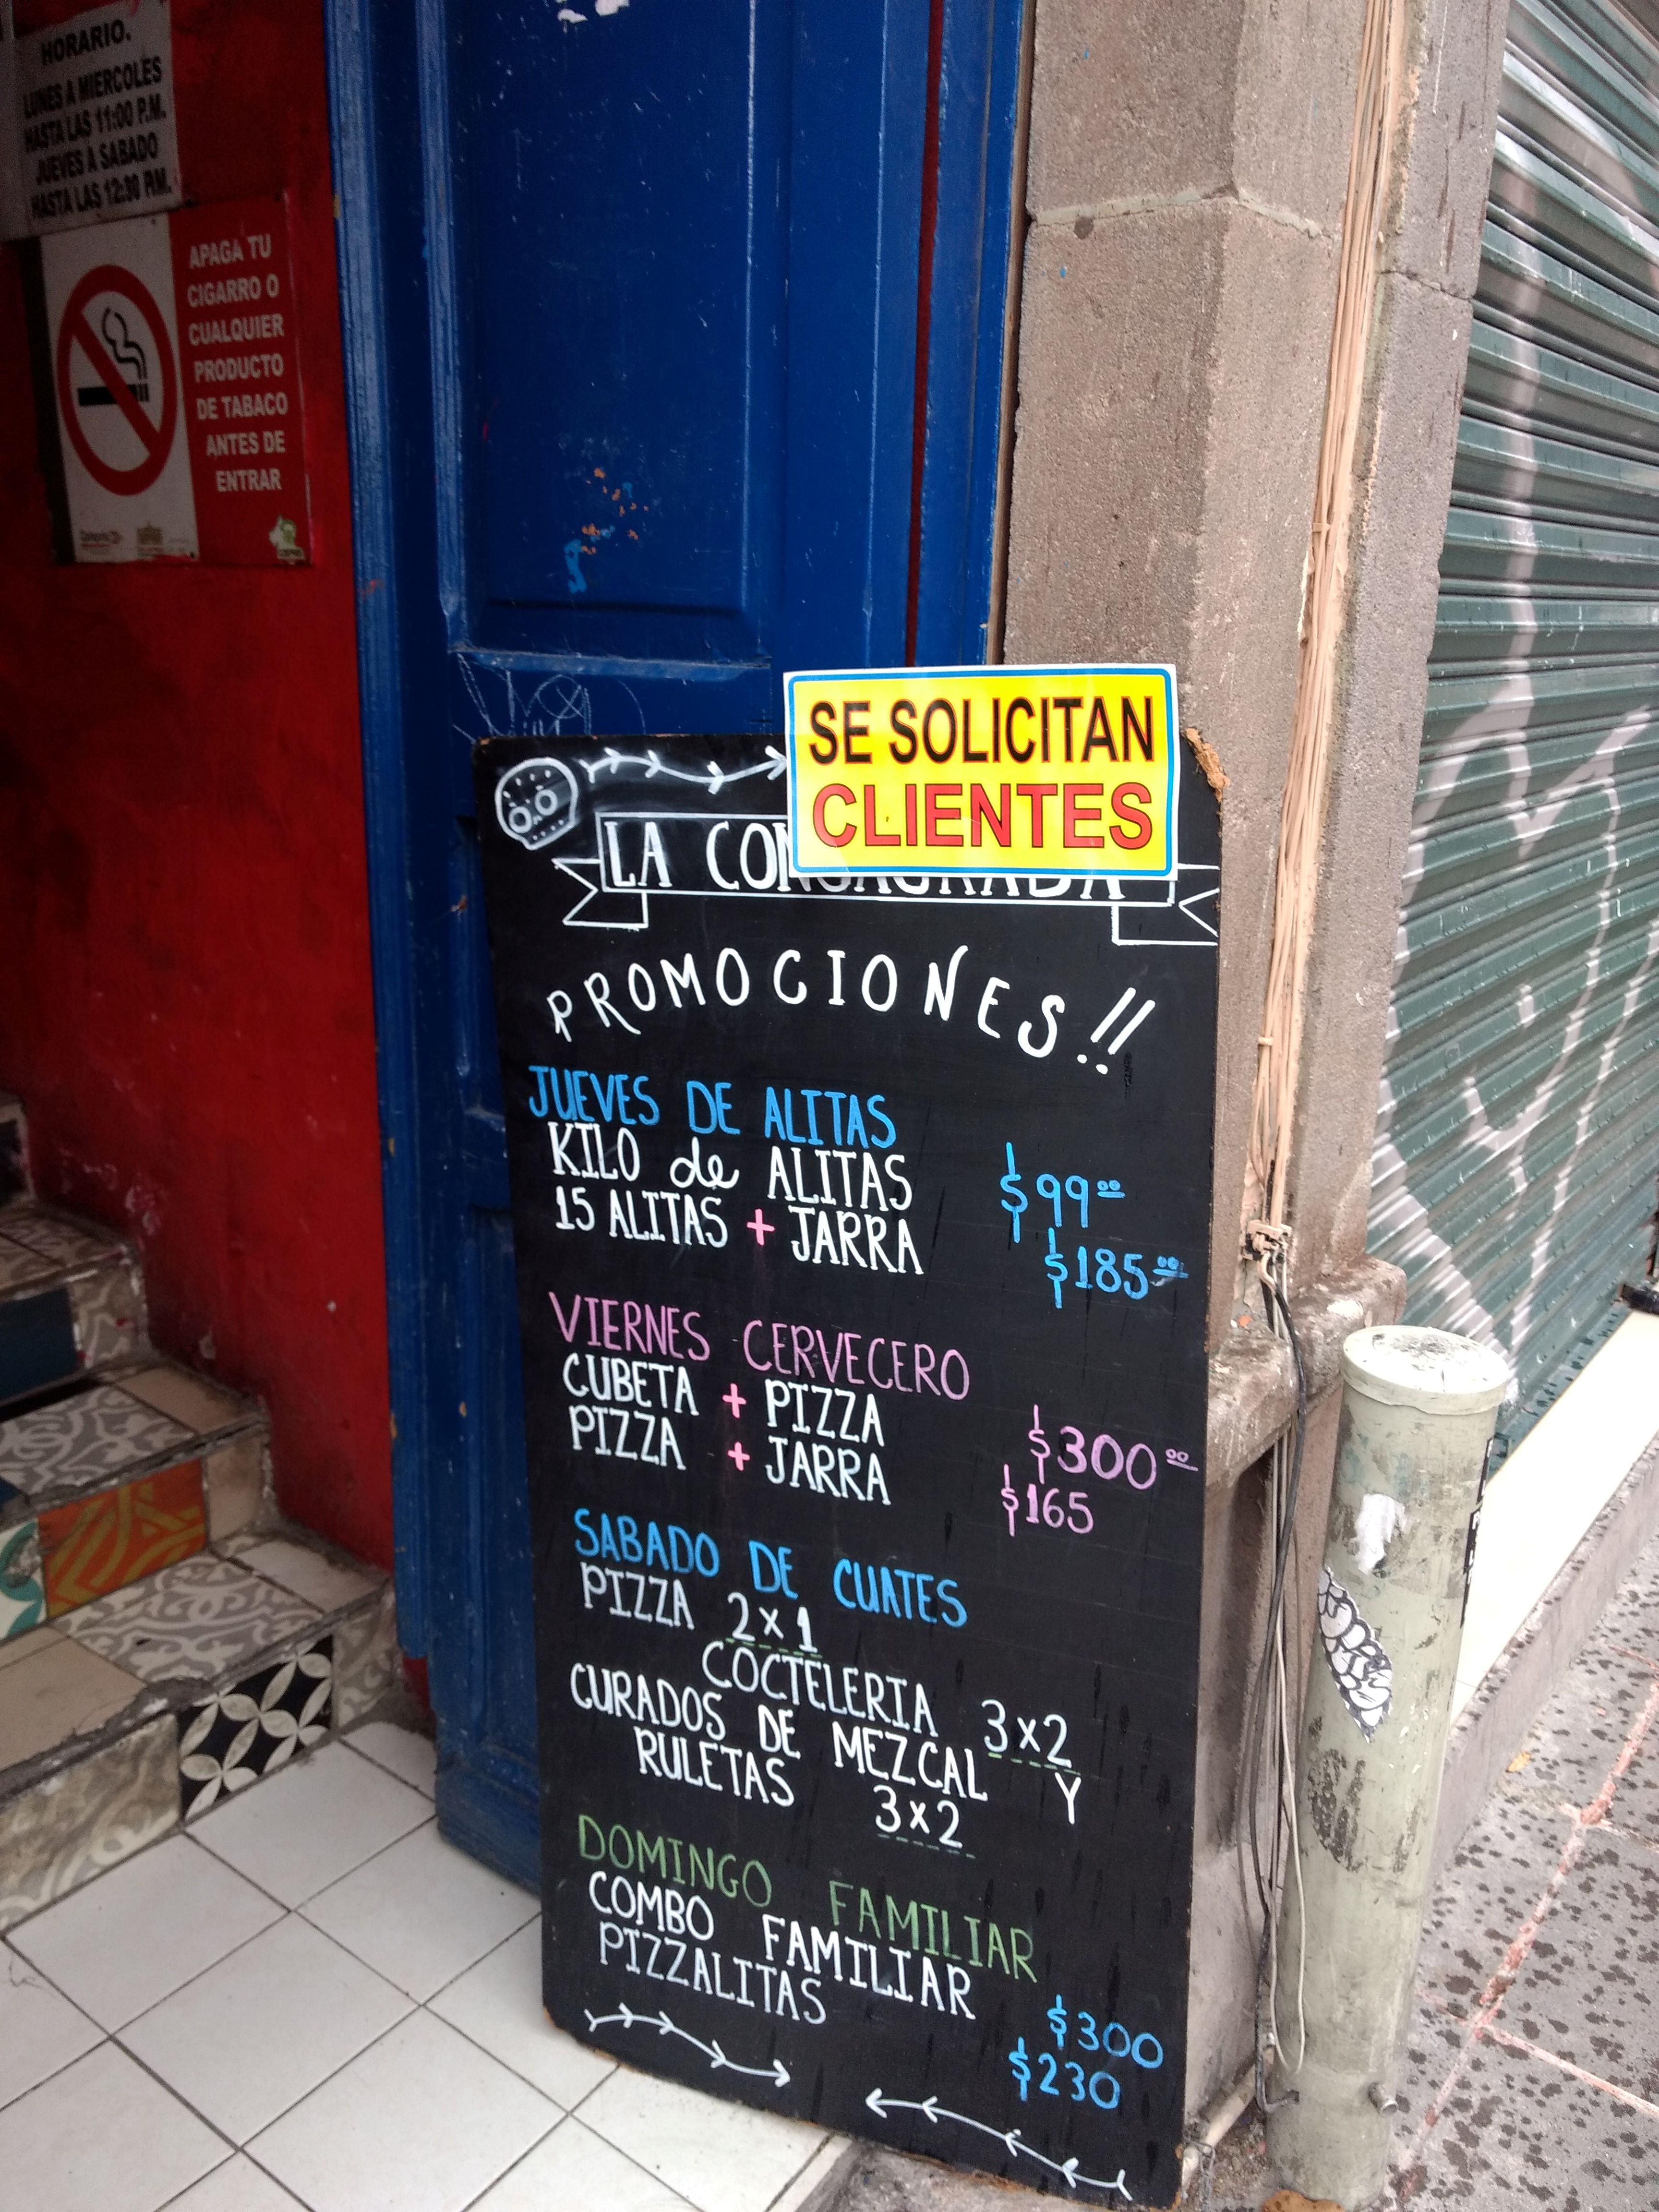 HORARIO.
LUNES A MIERCOLES
HASTA LAS 11:00 P.M.
JUEVES A SABADO
HASTA LAS 12:30 P.M.
APAGA TU
CIGARRO O
CUALQUIER
PRODUCTO
DE TABACO
ANTES DE
ENTRAR
SE SOLICITAN
CLIENTES
LA CONSAGRADA
PROMOCIONES!!
JUEVES DE ALITAS
KILO de ALITAS $99.00
15 ALITAS + JARRA $185.00
VIERNES CERVECERO
CUBETA + PIZZA $300.00
PIZZA + JARRA $165
SABADO DE CUATES
PIZZA 2x1
COCTELERIA 3x2
CURADOS DE MEZCAL Y
RULETAS 3x2
DOMINGO FAMILIAR
COMBO FAMILIAR $300
PIZZALITAS $230